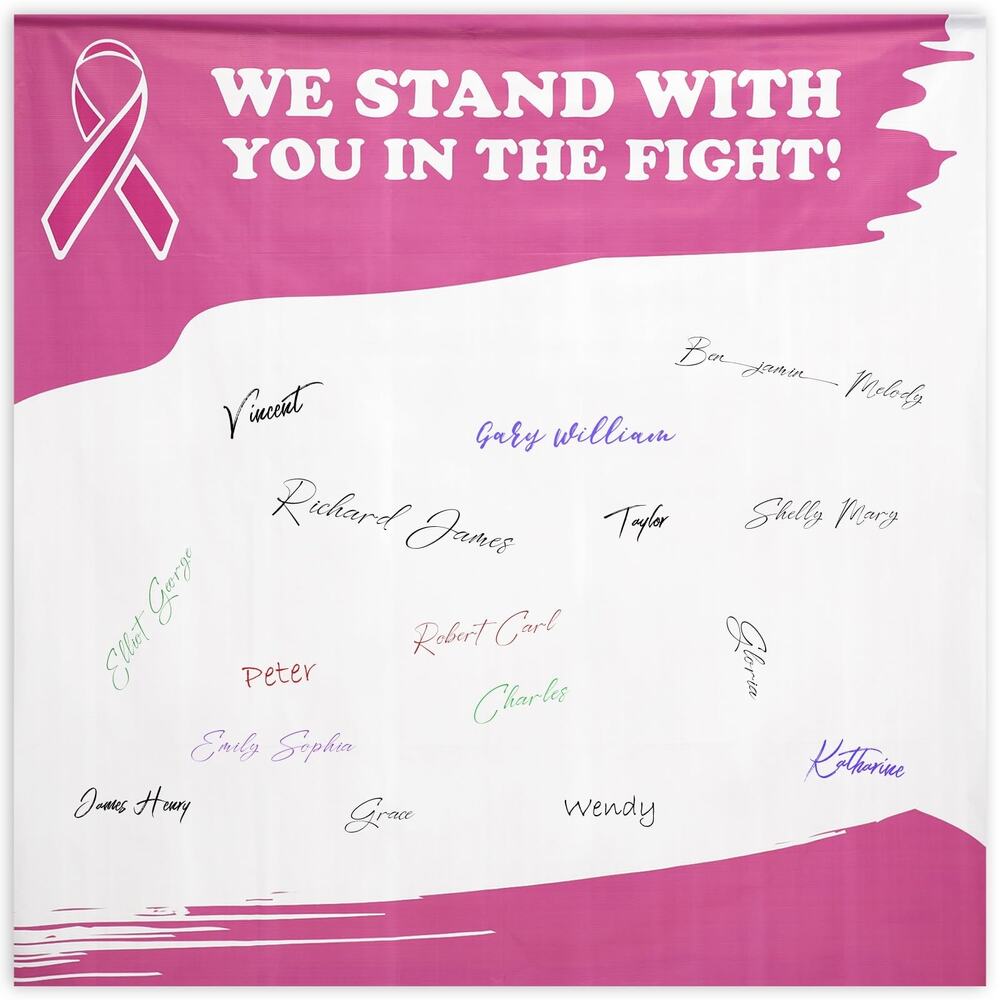 WE STAND WITH
YOU IN THE FIGHT!
Benjamin Melody
Vincent
Gary William
Richard James
Taylor
Shelly Mary
Elliot George
Robert Carl
Gloria
Peter
Charles
Emily Sophia
Katharine
James Henry
Grace
Wendy